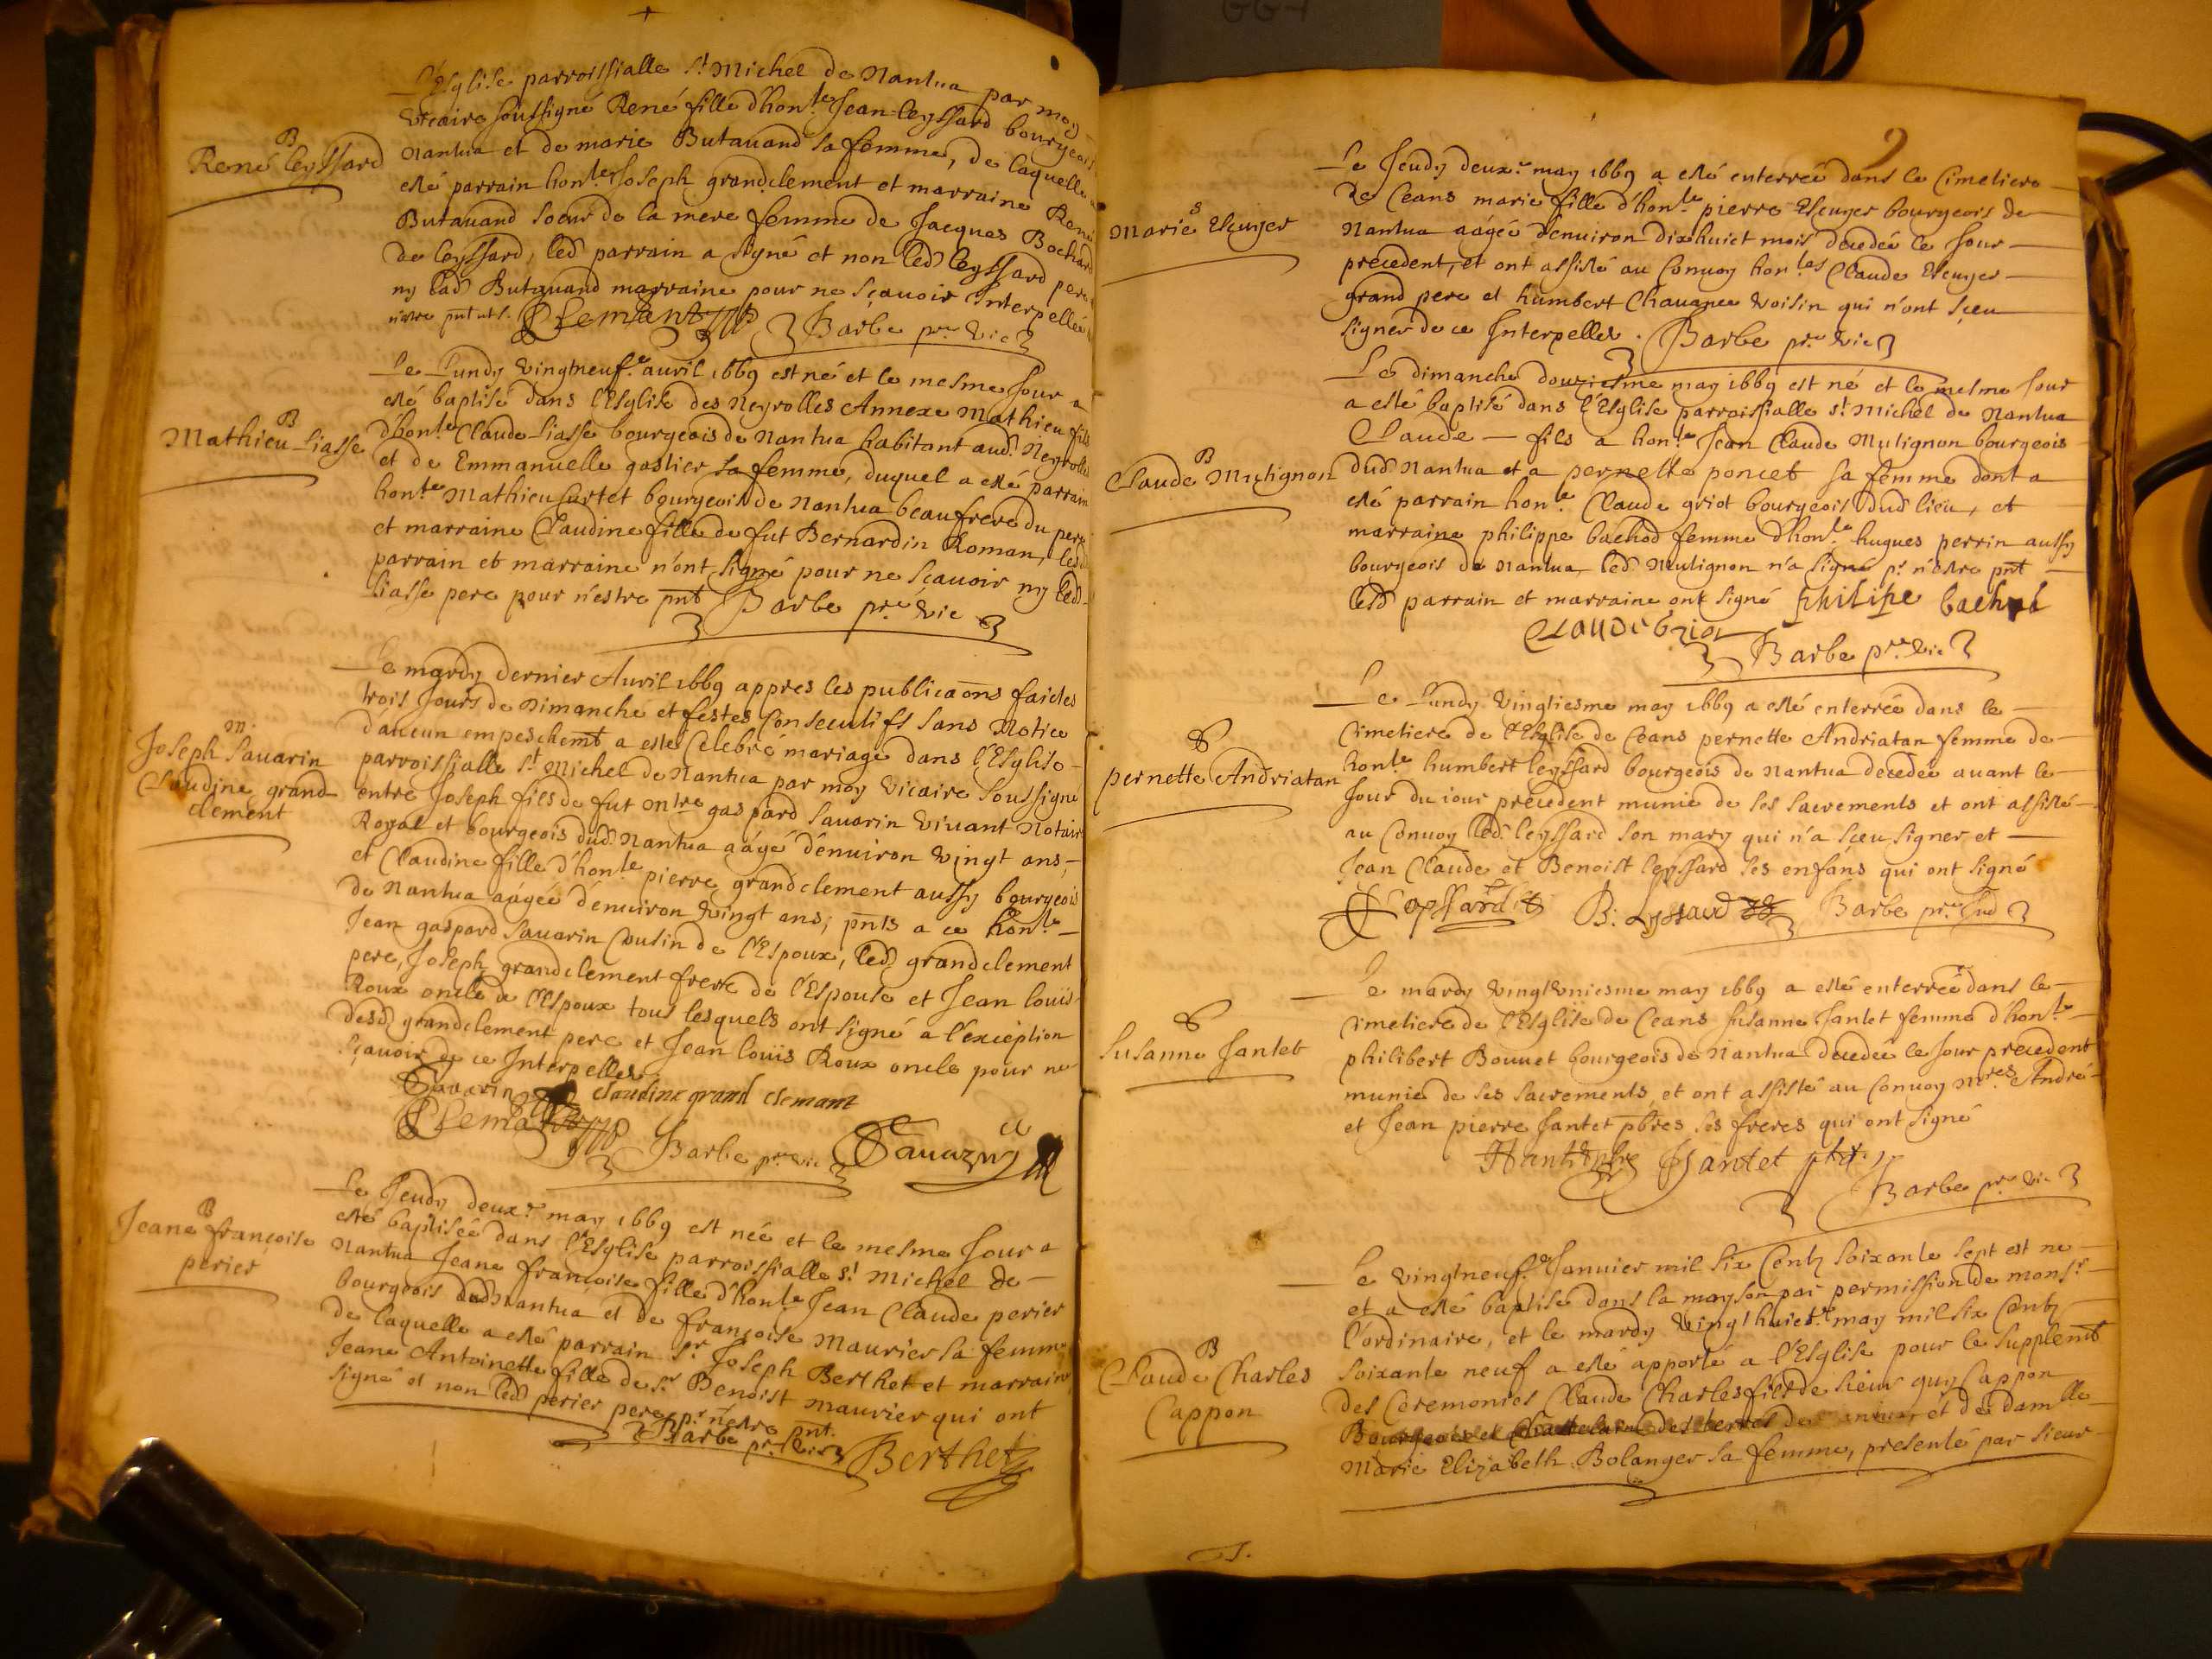 L'Esglise parroissialle st Michel de Nantua par moy
vicaire soussigné René fille d'honte Jean leyssard bourgeois
Nantua et de marie Butavand sa femme, de laquelle a
esté parrain honte Joseph grandclement et marraine René
Butavand soeur de la mere femme de Jacques Bochard
de leyssard, led parrain a signé et non led leyssard pere
ny lad Butavand marraine pour ne sçavoir Interpellés
Barbe pre vic
B
René leyssard
Le Lundy vingtneufe avril 1669 est né et le mesme Jour a
esté baptisé dans l'Esglise des Neyrolles Annexe Mathieu fils
d'honte Claude Liasse bourgeois de Nantua habitant aud Neyrolles
et de Emmanuelle gastier sa femme, duquel a esté parrain
honte Mathieu Curtet bourgeois de Nantua beaufrere du pere
et marraine Claudine fille de fut Bernardin Roman, lesd
parrain et marraine n'ont signé pour ne sçavoir ny led
Liasse pere pour n'estre pnt Barbe pre vic
B
Mathieu Liasse
Le mardy dernier Avril 1669 appres les publicaons faictes
trois Jours de Dimanche et festes Consecutifs sans Notice
d'aucun empeschemt a esté Celebré mariage dans l'Esglise
parroissialle st Michel de Nantua par moy vicaire soussigné
entre Joseph fils de fut gaspard Savarin vivant Notaire
Royal et bourgeois dud Nantua aâgé d'environ vingt ans,
et Claudine fille d'honte pierre grandclement aussy bourgeois
de Nantua aâgée d'environ vingt ans; pnts a ce honte
Jean gaspard Savarin Cousin de l'Espoux, led grandclement
pere, Joseph grandclement frere de l'Espouse et Jean louïs
Roux oncle de l'Espoux tous lesquels ont signé a l'exception
desd grandclement pere et Jean louïs Roux oncle pour ne
sçavoir de ce Interpellés
Savarin Claudine grand clemant
Barbe pre vic Savarin
m
Joseph Savarin
Claudine grand
clement
Le Jeudy deuxe may 1669 est née et le mesme Jour a
esté baptisée dans l'Esglise parroissialle st Michel de
Nantua Jeane françoise fille d'honte Jean Claude perier
bourgeois dud Nantua et de françoise Maurier sa femme
de laquelle a esté parrain sr Joseph Berthet et marraine
Jeane Antoinette fille de sr Benoist Maurier qui ont
signé et non led perier pere pr n'estre pnt.
Barbe pre vic Berthet
B
Jeane françoise
perier
9
Le Jeudy deuxe may 1669 a esté enterrée dans le Cimetiere
de Ceans marie fille d'honte pierre Escuyer bourgeois de
Nantua aâgée d'environ dixhuict mois decedée le Jour
precedent, et ont assisté au Convoy hontes Claude Escuyer
grand pere et humbert Chavanne voisin qui n'ont sceu
signer de ce Interpellés. Barbe pre vic
S
Marie Escuyer
Le dimanche douziesme may 1669 est né et le mesme Jour
a esté baptisé dans l'Esglise parroissialle st Michel de Nantua
Claude fils a honte Jean Claude Mutignon bourgeois
dud Nantua et a pernette poncet sa femme dont a
esté parrain honte Claude griot bourgeois dud lieu, et
marraine philippe bachod femme d'honte hugues perrin aussy
bourgeois de Nantua, led Mutignon n'a signé pr n'estre pnt
lesd parrain et marraine ont signé philipe bachod
Claude Griot
Barbe pre vic
B
Claude Mutignon
Le Lundy vingtiesme may 1669 a esté enterrée dans le
Cimetiere de l'Esglise de Ceans pernette Andriatan femme de
honte humbert leyssard bourgeois de Nantua decedée avant le
Jour du iour precedent munie de ses sacrements et ont assisté
au Convoy led leyssard son mary qui n'a sceu signer et
Jean Claude et Benoist leyssard ses enfans qui ont signé
B. Lyssard Barbe pre
S
pernette Andriatan
Le mardy vingtvniesme may 1669 a esté enterrée dans le
Cimetiere de l'Esglise de Ceans susanne Jantet femme d'honte
philibert Bouuet bourgeois de Nantua decedée le Jour precedent
munie de ses sacrements, et ont assisté au Convoy mres André
et Jean pierre Jantet pbres ses freres qui ont signé
Jantet
Barbe pre vic
S
Susanne Jantet
Le vingtneufe Janvier mil six Centz soixante sept est né
et a esté baptisé dans la mayson par permission de monsr
l'ordinaire, et le mardy vingthuicte may mil six Centz
soixante neuf a esté apporté a l'Esglise pour le supplemt
des Ceremonies Claude Charles fils de sieur guy Cappon
Bourgeois et Chastelain des terres de et de damlle
Marie Elizabeth Bolanger sa femme, presenté par sieur
B
Claude Charles
Cappon